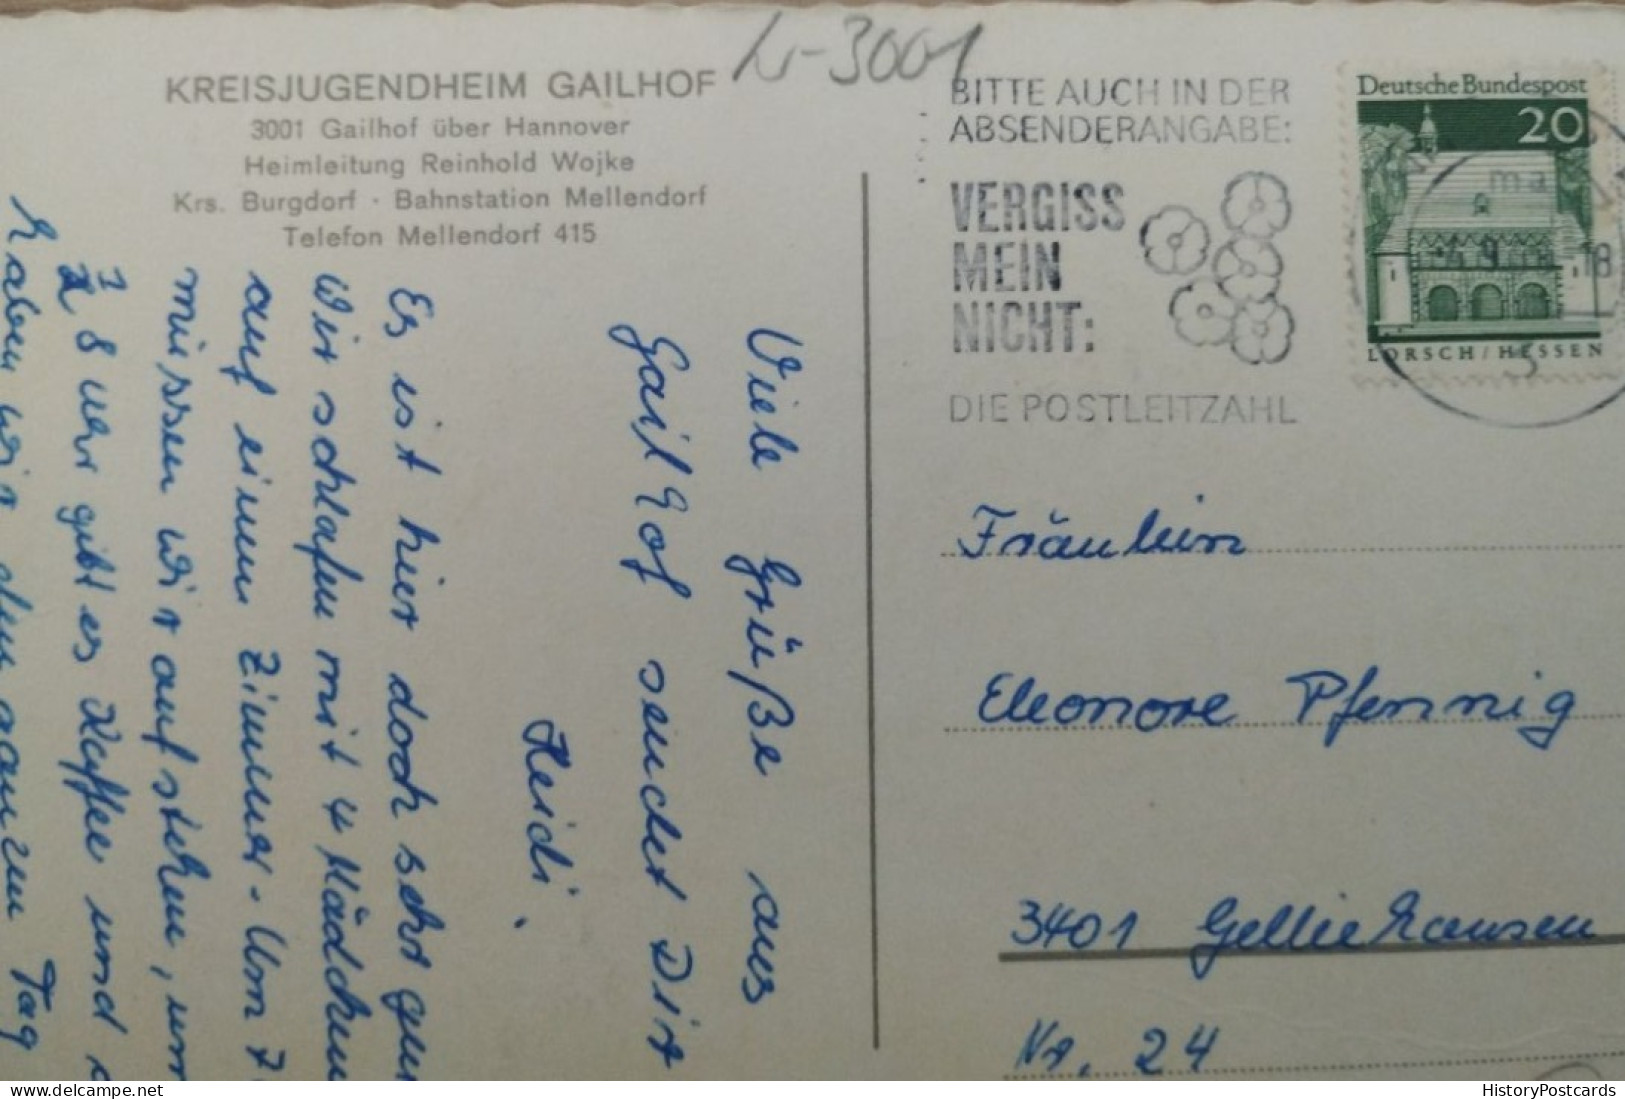 h-3001
KREISJUGENDHEIM GAILHOF
3001 Gailhof über Hannover
Heimleitung Reinhold Wojke
Krs. Burgdorf · Bahnstation Mellendorf
Telefon Mellendorf 415
BITTE AUCH IN DER
ABSENDERANGABE:
VERGISS
MEIN
NICHT:
DIE POSTLEITZAHL
Deutsche Bundespost
20
LORSCH/HESSEN
Viele Grüße aus
Gailhof sendet Dir
Heidi.
Es ist hier doch sehr gut
Wir schlafen mit 4 Mädchen
auf einem Zimmer. Um 7
müssen wir aufstehen, um
8 Uhr gibt es Kaffee und
haben wir den ganzen Tag
Fräulein
Eleonore Pfennig
3401 Gelliehausen
Nr. 24
HistoryPostcards